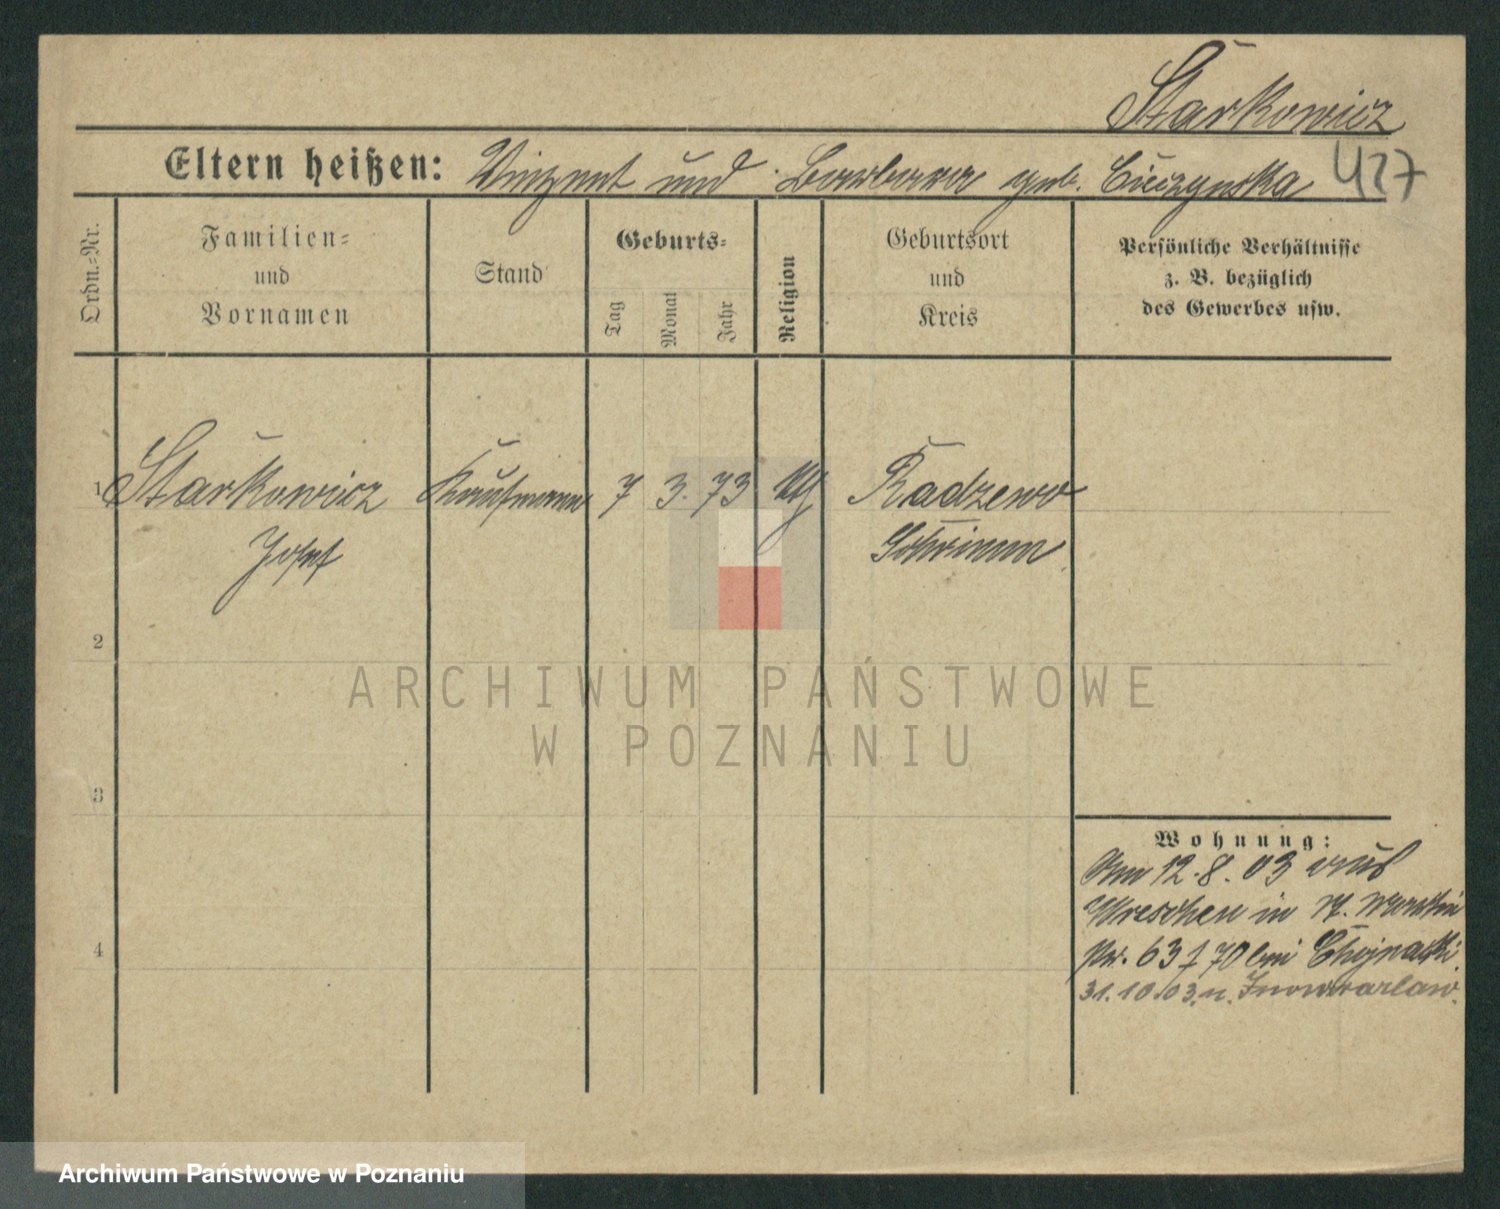 Starkowicz
Eltern heißen: Vinzent und Barbara geb. Cieczynska 427
Ordn.-Nr.
Familien-
und
Vornamen
Stand
Geburts-
Tag
Monat
Jahr
Religion
Geburtsort
und
Kreis
Persönliche Verhältnisse
z. B. bezüglich
des Gewerbes usw.
1 Starkowicz Kaufmann 7 3. 73 Radzewo
Josef Schrimm
2
3
4
Wohnung:
Am 12.8.03 aus
Wreschen in St. Martin
Nr. 63 70 bei Chojnacki.
31.10.03. n. Inowrazlaw.
ARCHIWUM PAŃSTWOWE
W POZNANIU
Archiwum Państwowe w Poznaniu